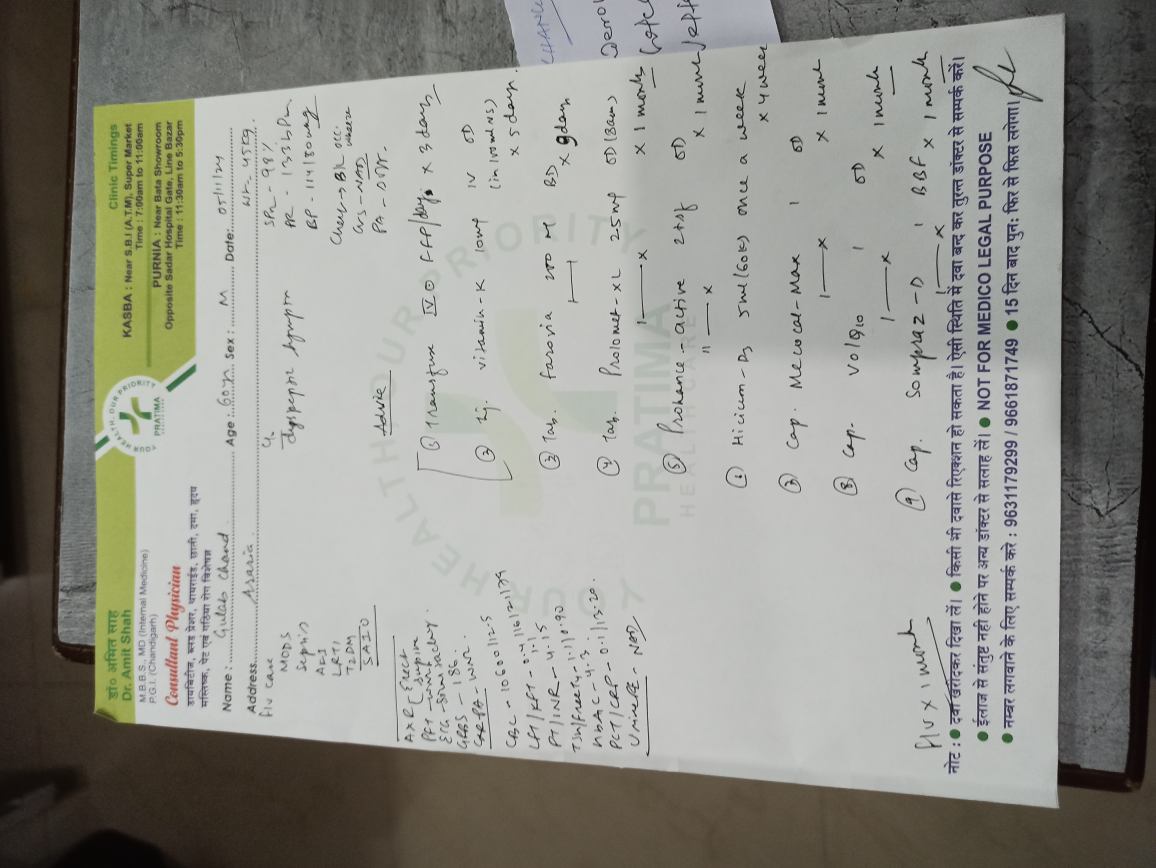 डॉ० अमित साह
Dr. Amit Shah
M.B.B.S. MD (Internal Medicine)
P.G.I. (Chandigarh)
Consultant Physician
मस्तिष्क, पेट एवं गठिया रोग विशेषज्ञ
YOUR HEALTH OUR PRIORITY
PRATIMA
Clinic Timings
KASBA : Near S.B.I (A.T.M), Super Market
Time : 7:00am to 11:00am
PURNIA : Near Bata Showroom
Opposite Sadar Hospital Gate, Line Bazar
Time : 11:30am to 5:30pm
Name : Gulab Chand Age : 60yr Sex : M Date: 05/11/24
Address Araria Wt- 45kg
F/U case
MODS
Sepsis
AFI
LRTI
T2DM
SAIO
SPO2 - 98%
PR - 133 bpm
BP - 114/80mmHg
Chest → B/L occ.
CVS - NAD
AXR Erect
supine
GRBS - 186
CBC - 10600/12.5
PT/INR - 4.15
HbA1C - 4.3
PCT/CRP - 0.1/13.20
Urine R - NAD
Advice
① Transfuse IV FFP/day x 3 days
② Inj. vitamin-K 10mg IV OD
(in 100ml NS)
x 5 days.
③ Tab. Farovia 200 mg BD
x 9 days
④ Tab. Prolomet-XL 25mg OD (8am)
x 1 month
⑤ Prohance-active 2tsf OD
x 1 month
⑥ Hicium-D3 5ml (60k) once a week
x 4 week
⑦ Cap. Mecocal-Max 1 OD
x 1 month
⑧ Cap. Volq10 1 OD
x 1 month
⑨ Cap. Sompraz-D 1 BBF x 1 month
F/U x 1 month
YOUR HEALTH OUR PRIORITY
PRATIMA
HEALTHCARE
नोट : ● दवा खरीदकर दिखा लें। ● किसी भी दवासे रिएक्शन हो सकता है। ऐसी स्थिति में दवा बन्द कर तुरन्त डॉक्टर से सम्पर्क करें।
● ईलाज से संतुष्ट नही होने पर अन्य डॉक्टर से सलाह लें। ● NOT FOR MEDICO LEGAL PURPOSE
● नम्बर लगवाने के लिए सम्पर्क करे : 9631179299 / 9661871749 ● 15 दिन बाद पुन: फिर से फिस लगेगा।